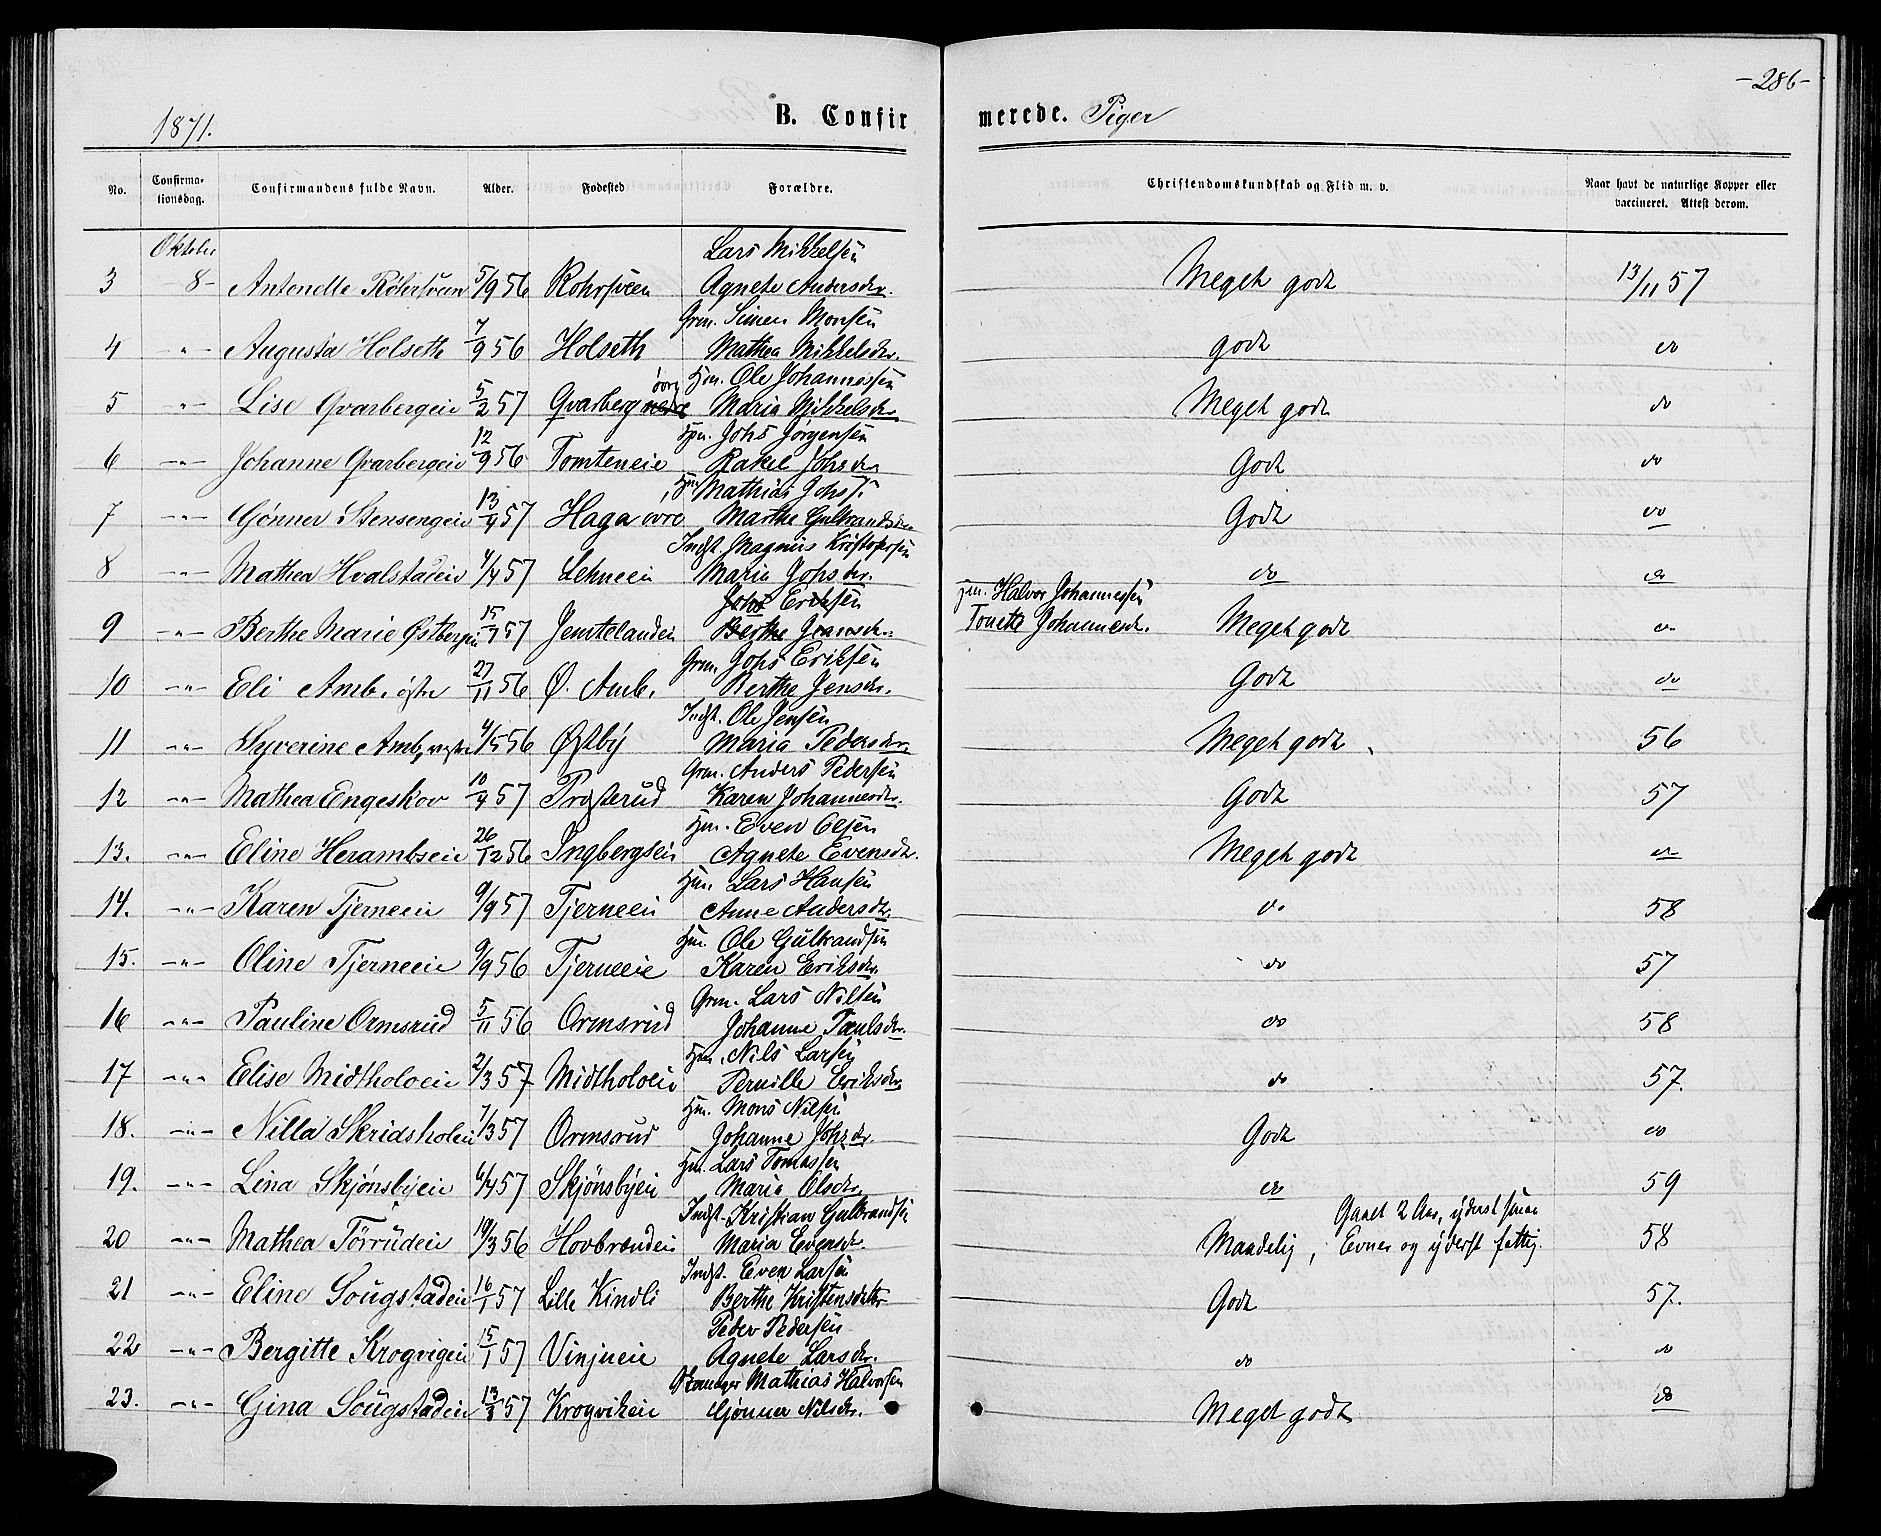 -286-
1871. B. Confirmerede. Piger
No. Confirmationsdag. Confirmandens fulde Navn. Alder. Fødested Forældre. Christendomskundskab og Flid m. v. Naar havt de naturlige Kopper eller vaccineret. Attest derom.
Oktober Lars Mikkelsen
3 8 Antonette 5/9 56 Rohrsveen Agnete Andersdr. Meget godt 13/11 57
Grm. Simen Monsen
4 -"- Augusta Holseth 7/9 56 Holseth Mathea Mikkelsdr. godt do
Hm. Ole Johannessen
5 " Lise Qvarbergeie 5/2 57 Qvarberg nedre øvre Maria Mikkelsdr. Meget godt do
Hm. Johs Jørgensen
6 -"- Johanne Qvarbergeie 12/9 56 Tomteneie Rakel Johsdr Godt do
Hm Mathias Johss.
7 -"- Gønner Stensengeie 13/4 57 Haga øvre Marthe Gulbrandsdr. Godt do
Indst. Magnus Kristofersen
8 -"- Mathea Hvalstadeie 4/4 57 Lehneeie Maria Johsdr. do do
Johs Eriksen Hm. Halvor Johannessen
9 -"- Berthe Marie Østbergeie 15/1 57 Jemtelandeie Berthe Jensdr. Tonette Johannesdr. Meget godt do
Grm. Johs Eriksen
10 -"- Eli Amb, østre 27/11 56 Ø. Amb. Berthe Jensdr. Godt do
Indst. Ole Jensen
11 -"- Syverine Amb, vestre 4/5 56 Østby Maria Pedersdr. Meget godt 56
Grm. Anders Pedersen
12 -"- Mathea Engeskov 10/4 57 Presterud Karen Johannesdr. Godt 57
Hm. Even Olsen
13. -"- Eline Herambseie 26/12 56 Ingbergseie Agnete Evensdr. Meget godt do
Hm. Lars Hansen
14. -"- Karen Tjerneeie 9/9 57 Tjerneeie Anne Andersdr. do 58
Hm. Ole Gulbrandsen
15. -"- Oline Tjerneeie 9/9 56 Tjerneeie Karen Eriksdr. do 57
Grm. Lars Nilsen
16 -"- Pauline Ormsrud 5/11 56 Ormsrud Johanne Paulsdr. do 58
Hm. Nils Larsen
17 -"- Elise Midtholoeie 2/3 57 Midtholoeie Pernille Eriksdr do 57.
Hm. Mons Nilsen
18. -"- Nilla Skridsholeie 7/3 57 Ormsrud Johanne Johsdr. Godt do
Hm. Lars Tomassen
19. -"- Lina Skjønsbyeie 6/4 57 Skjønsbyeie Maria Olsdr. do 59
Indst. Kristian Gulbrandsen Gaaet 2 Aar, yderst smaa
20 -"- Mathea Tørrudeie 19/3 56 Hovbrændeie Maria Evensdr. Maadelig, Evner og yderst fattig. 58
Indst. Even Larsen
21 -"- Eline Sougstadeie 16/1 57 Lille Kindli Berthe Kristensdatter Godt 57.
Peder Pedersen
22 -"- Bergitte Krogvigeie 15/1 57 Vinjueie Agnete Larsdr. do do
Mathias Halvorsen
23. -"- Gina Sougstadeie 13/8 57 Krogvikeie Gønner Nilsdr. Meget godt do